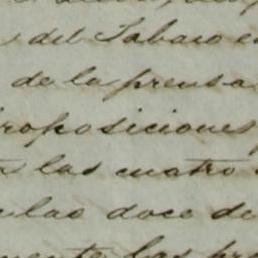 del Tabaco e
de la prensa
roposiciones
las cuatro
las doce de
mente las pr